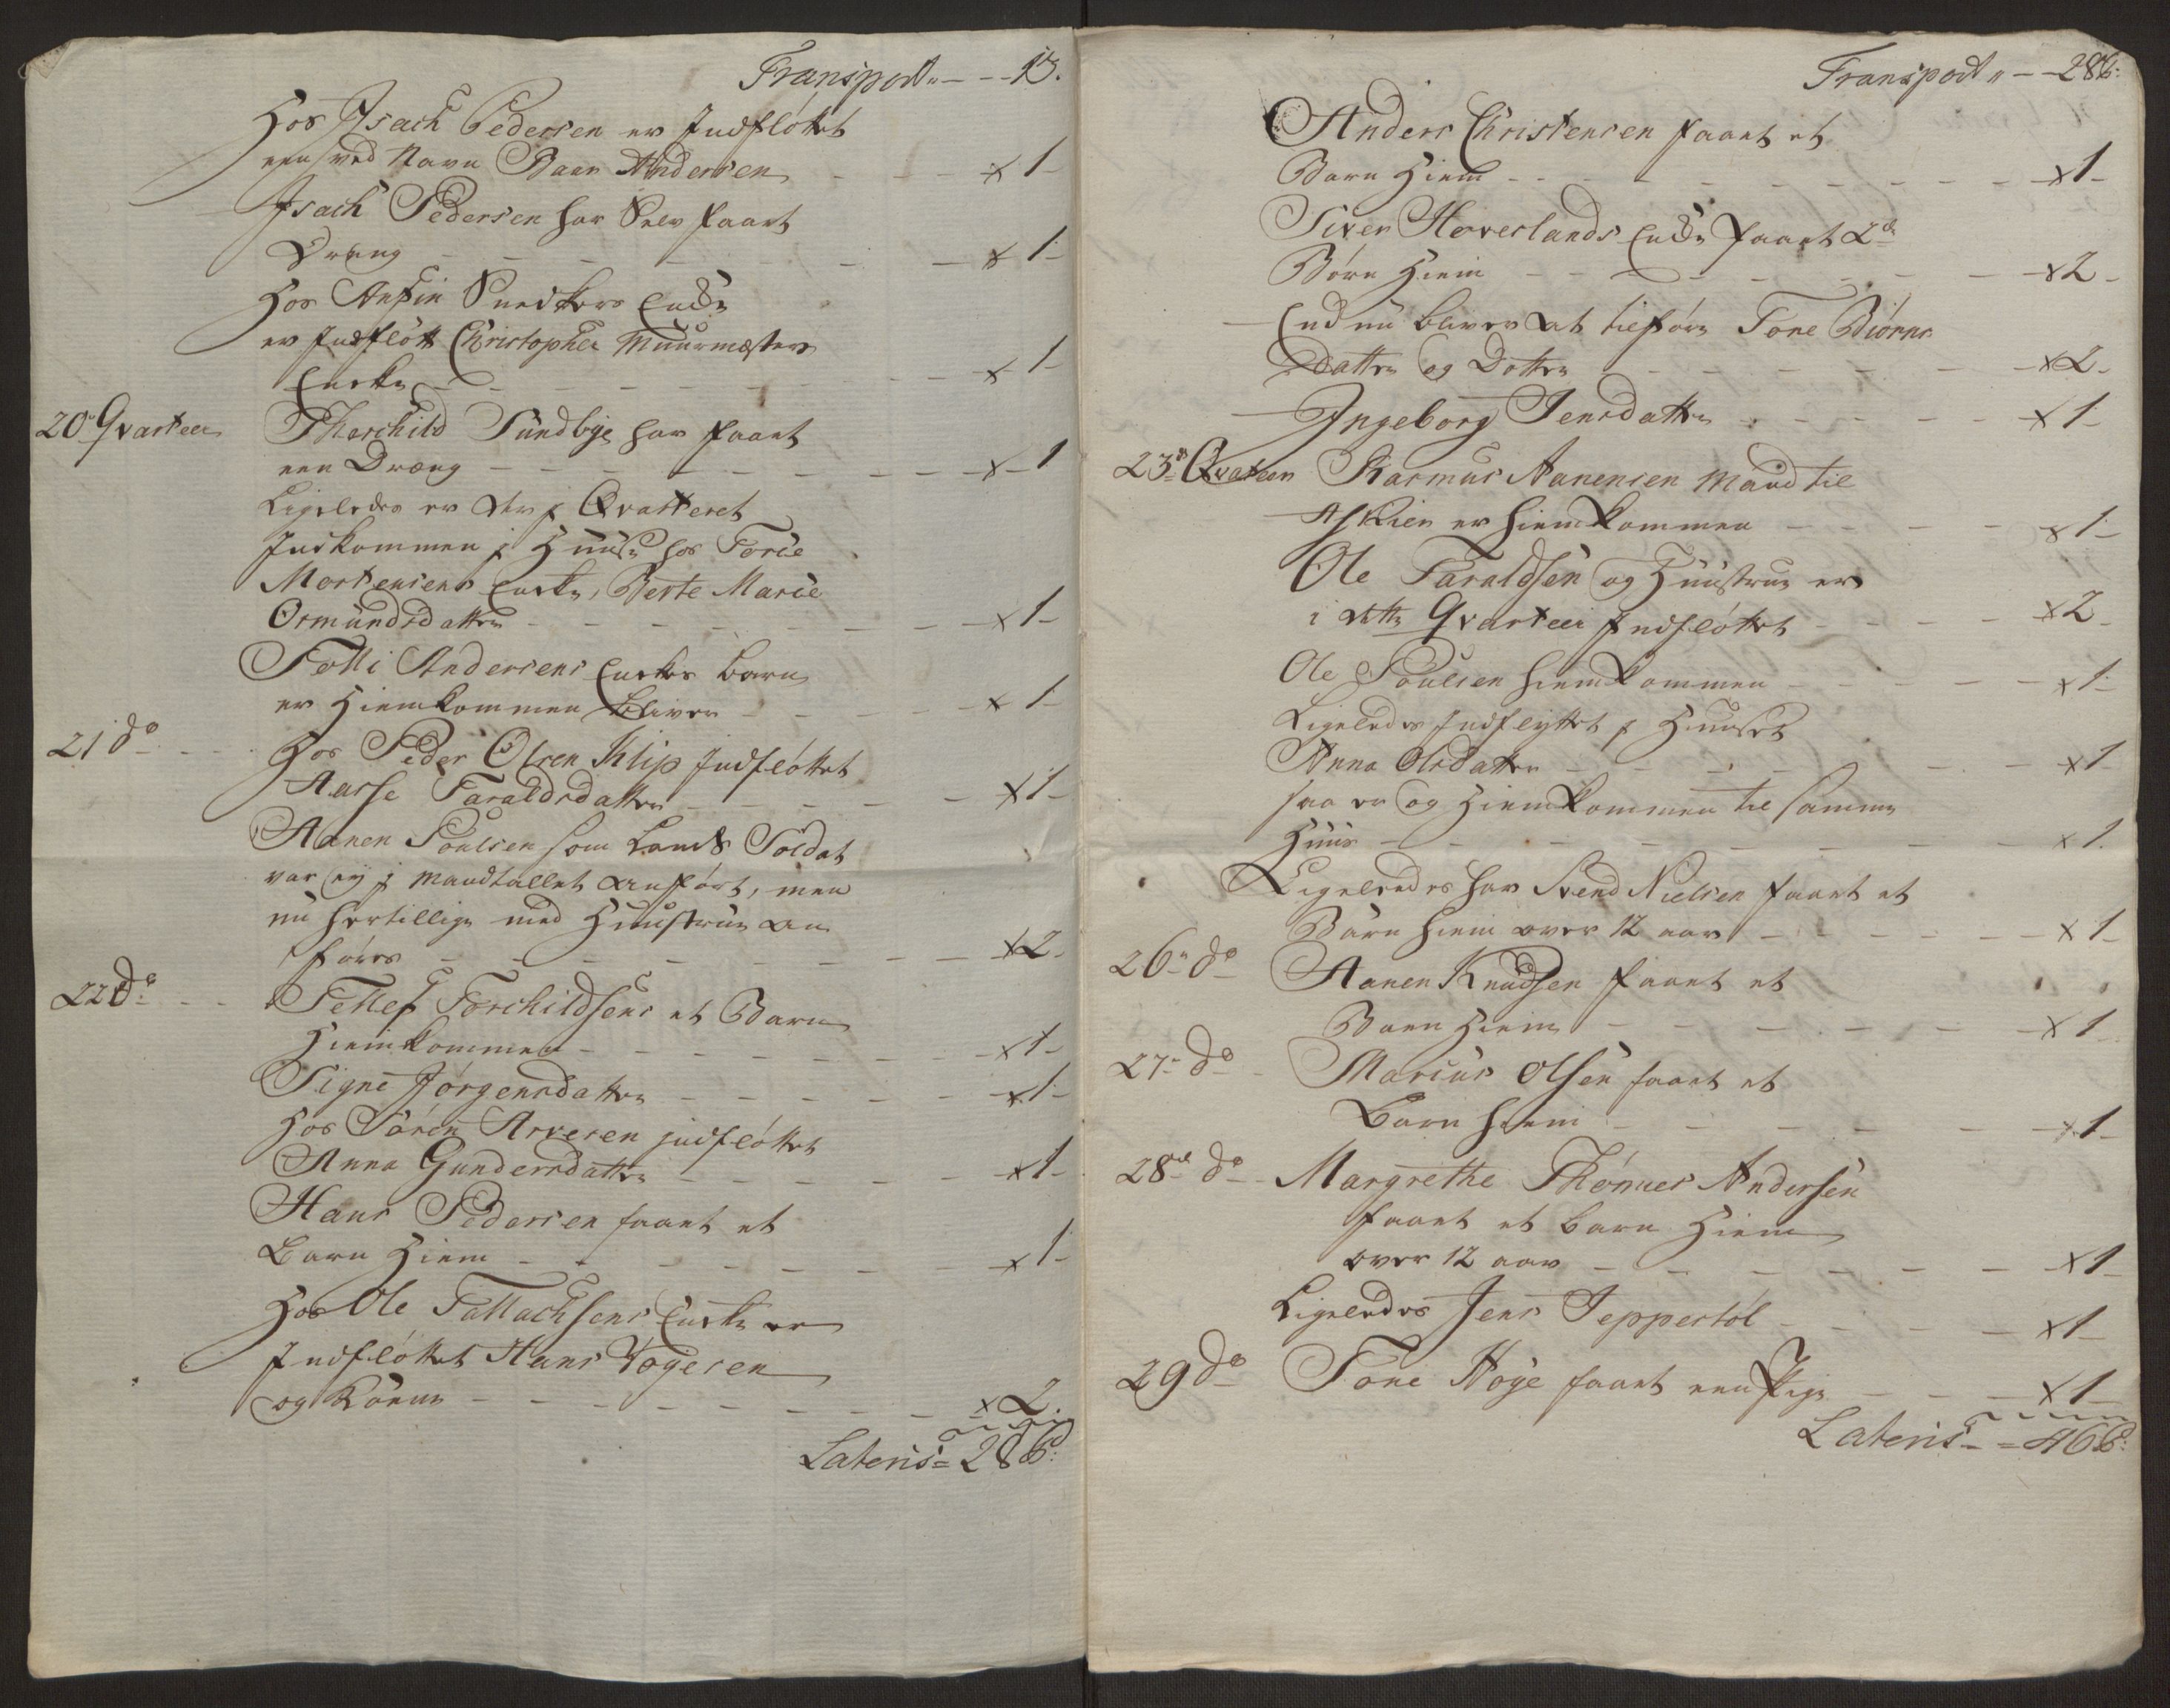 Transport „ - - 13.
Hos Isach Pedersen er Indfløttet
een ved Navn Baar Andersen - - - x 1 -
Isach Pedersen har Selv faaet
Dræng - - - - - - x 1 -
Hos Anfin Snedkers Enke
er Indfløtt Christopher Muurmæsters
Encke - - - - - - x 1 -
20 Qvarteer Therchild Sundbye har faaet
een Dræng - - - - - - x - 1
Ligeledes er der j Qvarteret
Indkommen j Huuse hos Torie
Mortensens Encke, Berte Marie
Ormundsdatter - - - - - - x 1 -
Tolli Andersens Enckes barn
er Hiemkommen bliver - - - - x 1 -
21 do - - Hos Peder Olsen Klip Indfløttet
Aasse Taraldsdatter - - - - - x 1 -
Aanen Poulsen som Lands Soldat
var ey j Mandtallet anført, men
nu hertillige med Huustrue an
føres - - - - - - x 2 -
22 do - - Tellef Torchildsens et Barn
Hiemkommen - - - - - - x 1 -
Signe Jørgensdatter - - - - - x 1 -
Hos Søren Arvesen jndfløttet
Anna Gundersdatter - - - - - x 1 -
Hans Pedersen faaet et
Barn Hiem - - - - - - x 1 -
Hos Ole Tallachsens Encke er
Indfløttet Hans Vogesen
og Konne - - - - - - x 2.
Lateris = 28
Transport „ - - 28
Anders Christensen faaet et
Barn Hiem - - - - - - x 1 -
Siver Høverlands Enke faaet 2de
Børn Hiem - - - - - - x 2 -
End nu bliver at tilføre Tone Biørns
datter og Dotter - - - - - x 2 -
Ingeborg Jensdatter - - - - - x 1 -
23de Qvarteer Rasmus Aanensen Mand til
Askier er hiemkommen - - - - x 1 -
Ole Taraldsen og Huustrue er
i dette Qvarteer Indfløttet - - - - x 2 -
Ole Poulsen hiemkommen - - - - - x 1 -
Ligeledes Indflyttet j Huuset
Anna Olsdatter - - - - - x 1
saa er og Hiemkommen til samme
Huus - - - - - - x 1.
Ligeledes har Svend Nielsen faaet et
Barn hiem over 12 aar - - - - - x 1 -
26 do Aanen Knudsen faaet et
Barn Hiem - - - - - - x 1
27 do - Marcus Olsen faaet et
Barn hiem - - - - - - x 1 -
28de do - Margrethe Thómes Andersen
faaet et barn Hiem
over 12 aar - - - - - - x 1 -
Ligeledes Jens Jeppestøl - - - - x 1 -
29 do Tone Høye faaet een Pige - - - x 1 -
Lateris - = 46